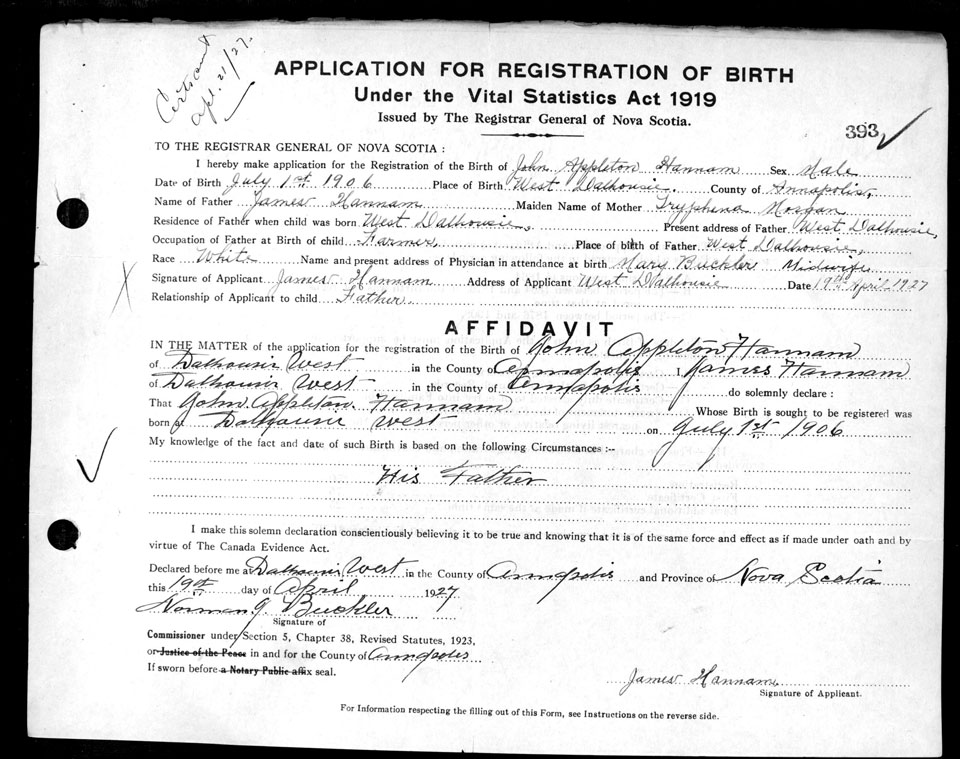 Certs sent
Apl. 21/27.
APPLICATION FOR REGISTRATION OF BIRTH
Under the Vital Statistics Act 1919
Issued by The Registrar General of Nova Scotia.
393
TO THE REGISTRAR GENERAL OF NOVA SCOTIA :
I hereby make application for the Registration of the Birth of John Appleton Hannam Sex Male
Date of Birth July 1st 1906 Place of Birth West Dalhousie. County of Annapolis,
Name of Father James Hannam Maiden Name of Mother Tryphena Morgan
Residence of Father when child was born West Dalhousie, Present address of Father West Dalhousie,
Occupation of Father at Birth of child Farmer, Place of birth of Father West Dalhousie,
Race White Name and present address of Physician in attendance at birth Mary Buckler Midwife
Signature of Applicant James Hannam Address of Applicant West Dalhousie Date 19th April 1927
Relationship of Applicant to child Father.
AFFIDAVIT
IN THE MATTER of the application for the registration of the Birth of John Appleton Hannam
of Dalhousie West in the County of Annapolis I, James Hannam
of Dalhousie West in the County of Annapolis do solemnly declare :
That John Appleton Hannam Whose Birth is sought to be registered was
born at Dalhousie West on July 1st 1906
My knowledge of the fact and date of such Birth is based on the following Circumstances :--
His Father
I make this solemn declaration conscientiously believing it to be true and knowing that it is of the same force and effect as if made under oath and by
virtue of The Canada Evidence Act.
Declared before me at Dalhousie West in the County of Annapolis and Province of Nova Scotia
this 19th day of April 1927
Norman J. Buckler
Signature of
Commissioner under Section 5, Chapter 38, Revised Statutes, 1923,
or Justice of the Peace in and for the County of Annapolis
If sworn before a Notary Public affix seal.
James Hannam
Signature of Applicant.
For Information respecting the filling out of this Form, see Instructions on the reverse side.